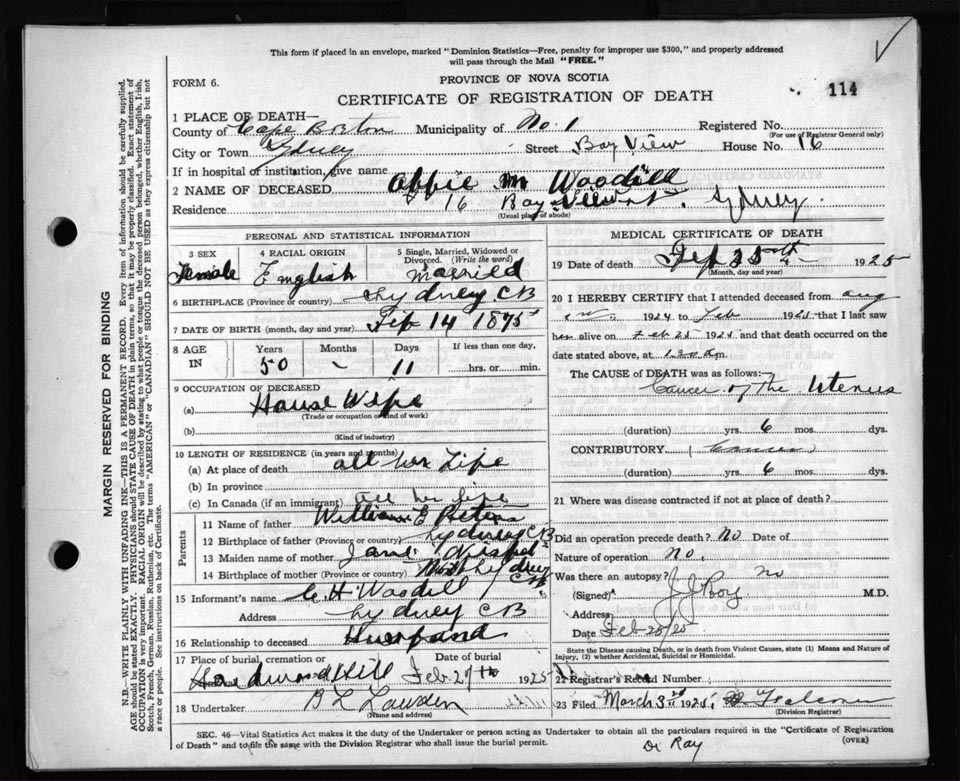 This form if placed in an envelope, marked "Dominion Statistics—Free, penalty for improper use $300," and properly addressed
will pass through the Mail "FREE."
FORM 6.
PROVINCE OF NOVA SCOTIA
114
CERTIFICATE OF REGISTRATION OF DEATH
1 PLACE OF DEATH—
County of Cape Breton Municipality of No. 1 Registered No.
(For use of Registrar General only)
City or Town Sydney Street Bay View House No. 16
If in hospital or institution, give name
2 NAME OF DECEASED Affie M Woodill
Residence 16 Bay View St. Sydney
(Usual place of abode)
PERSONAL AND STATISTICAL INFORMATION
3 SEX 4 RACIAL ORIGIN 5 Single, Married, Widowed or
Divorced. (Write the word)
Female English Married
6 BIRTHPLACE (Province or country) Sydney CB
7 DATE OF BIRTH (month, day and year) Feb 14 1875
8 AGE IN Years Months Days If less than one day,
50 – 11 hrs. or min.
9 OCCUPATION OF DECEASED
(a) House Wife
(Trade or occupation or kind of work)
(b)
(Kind of industry)
10 LENGTH OF RESIDENCE (in years and months)
(a) At place of death all her Life
(b) In province
(c) In Canada (if an immigrant) all her life
Parents
11 Name of father William E
12 Birthplace of father (Province or country) Sydney CB
13 Maiden name of mother Jane
14 Birthplace of mother (Province or country) North Sydney CB
15 Informant's name C. H. Woodill
Address Sydney CB
16 Relationship to deceased Husband
17 Place of burial, cremation or Date of burial
Hardwood Hill Feb 27th 1925
18 Undertaker B L
(Name and address)
MEDICAL CERTIFICATE OF DEATH
19 Date of death Feb 25th 1925
(Month, day and year)
20 I HEREBY CERTIFY that I attended deceased from Aug
1924 to Feb 1925 that I last saw
her alive on Feb 25 1925, and that death occurred on the
date stated above, at 1.30 m.
The CAUSE of DEATH was as follows:
Cancer of the Uterus
(duration) yrs. 6 mos. dys.
CONTRIBUTORY (
(duration) yrs. 6 mos. dys.
21 Where was disease contracted if not at place of death?
Did an operation precede death? No Date of
Nature of operation No.
Was there an autopsy? no
(Signed) J. J. Roy M.D.
Address
Date Feb 25/25
State the Disease causing Death, or in death from Violent Causes, state (1) Means and Nature of
Injury, (2) whether Accidental, Suicidal or Homicidal.
22 Registrar's Record Number
23 Filed March 3rd 1925
(Division Registrar)
SEC. 46—Vital Statistics Act makes it the duty of the Undertaker or person acting as Undertaker to obtain all the particulars required in the "Certificate of Registration
of Death" and to file the same with the Division Registrar who shall issue the burial permit. (OVER)
Dr Ray
MARGIN RESERVED FOR BINDING
N.B.—WRITE PLAINLY WITH UNFADING INK—THIS IS A PERMANENT RECORD. Every item of information should be carefully supplied.
AGE should be stated EXACTLY. PHYSICIANS should STATE CAUSE OF DEATH in plain terms, so that it may be properly classified. Exact statement of
OCCUPATION is very important. RACIAL ORIGIN will be described by stating to what people or tongue the deceased person belonged, whether English, Irish,
Scotch, French, German, Russian, Ruthenian, etc. The terms "AMERICAN" or "CANADIAN" SHOULD NOT BE USED as they express citizenship but not
a race or people. See instructions on back of Certificate.